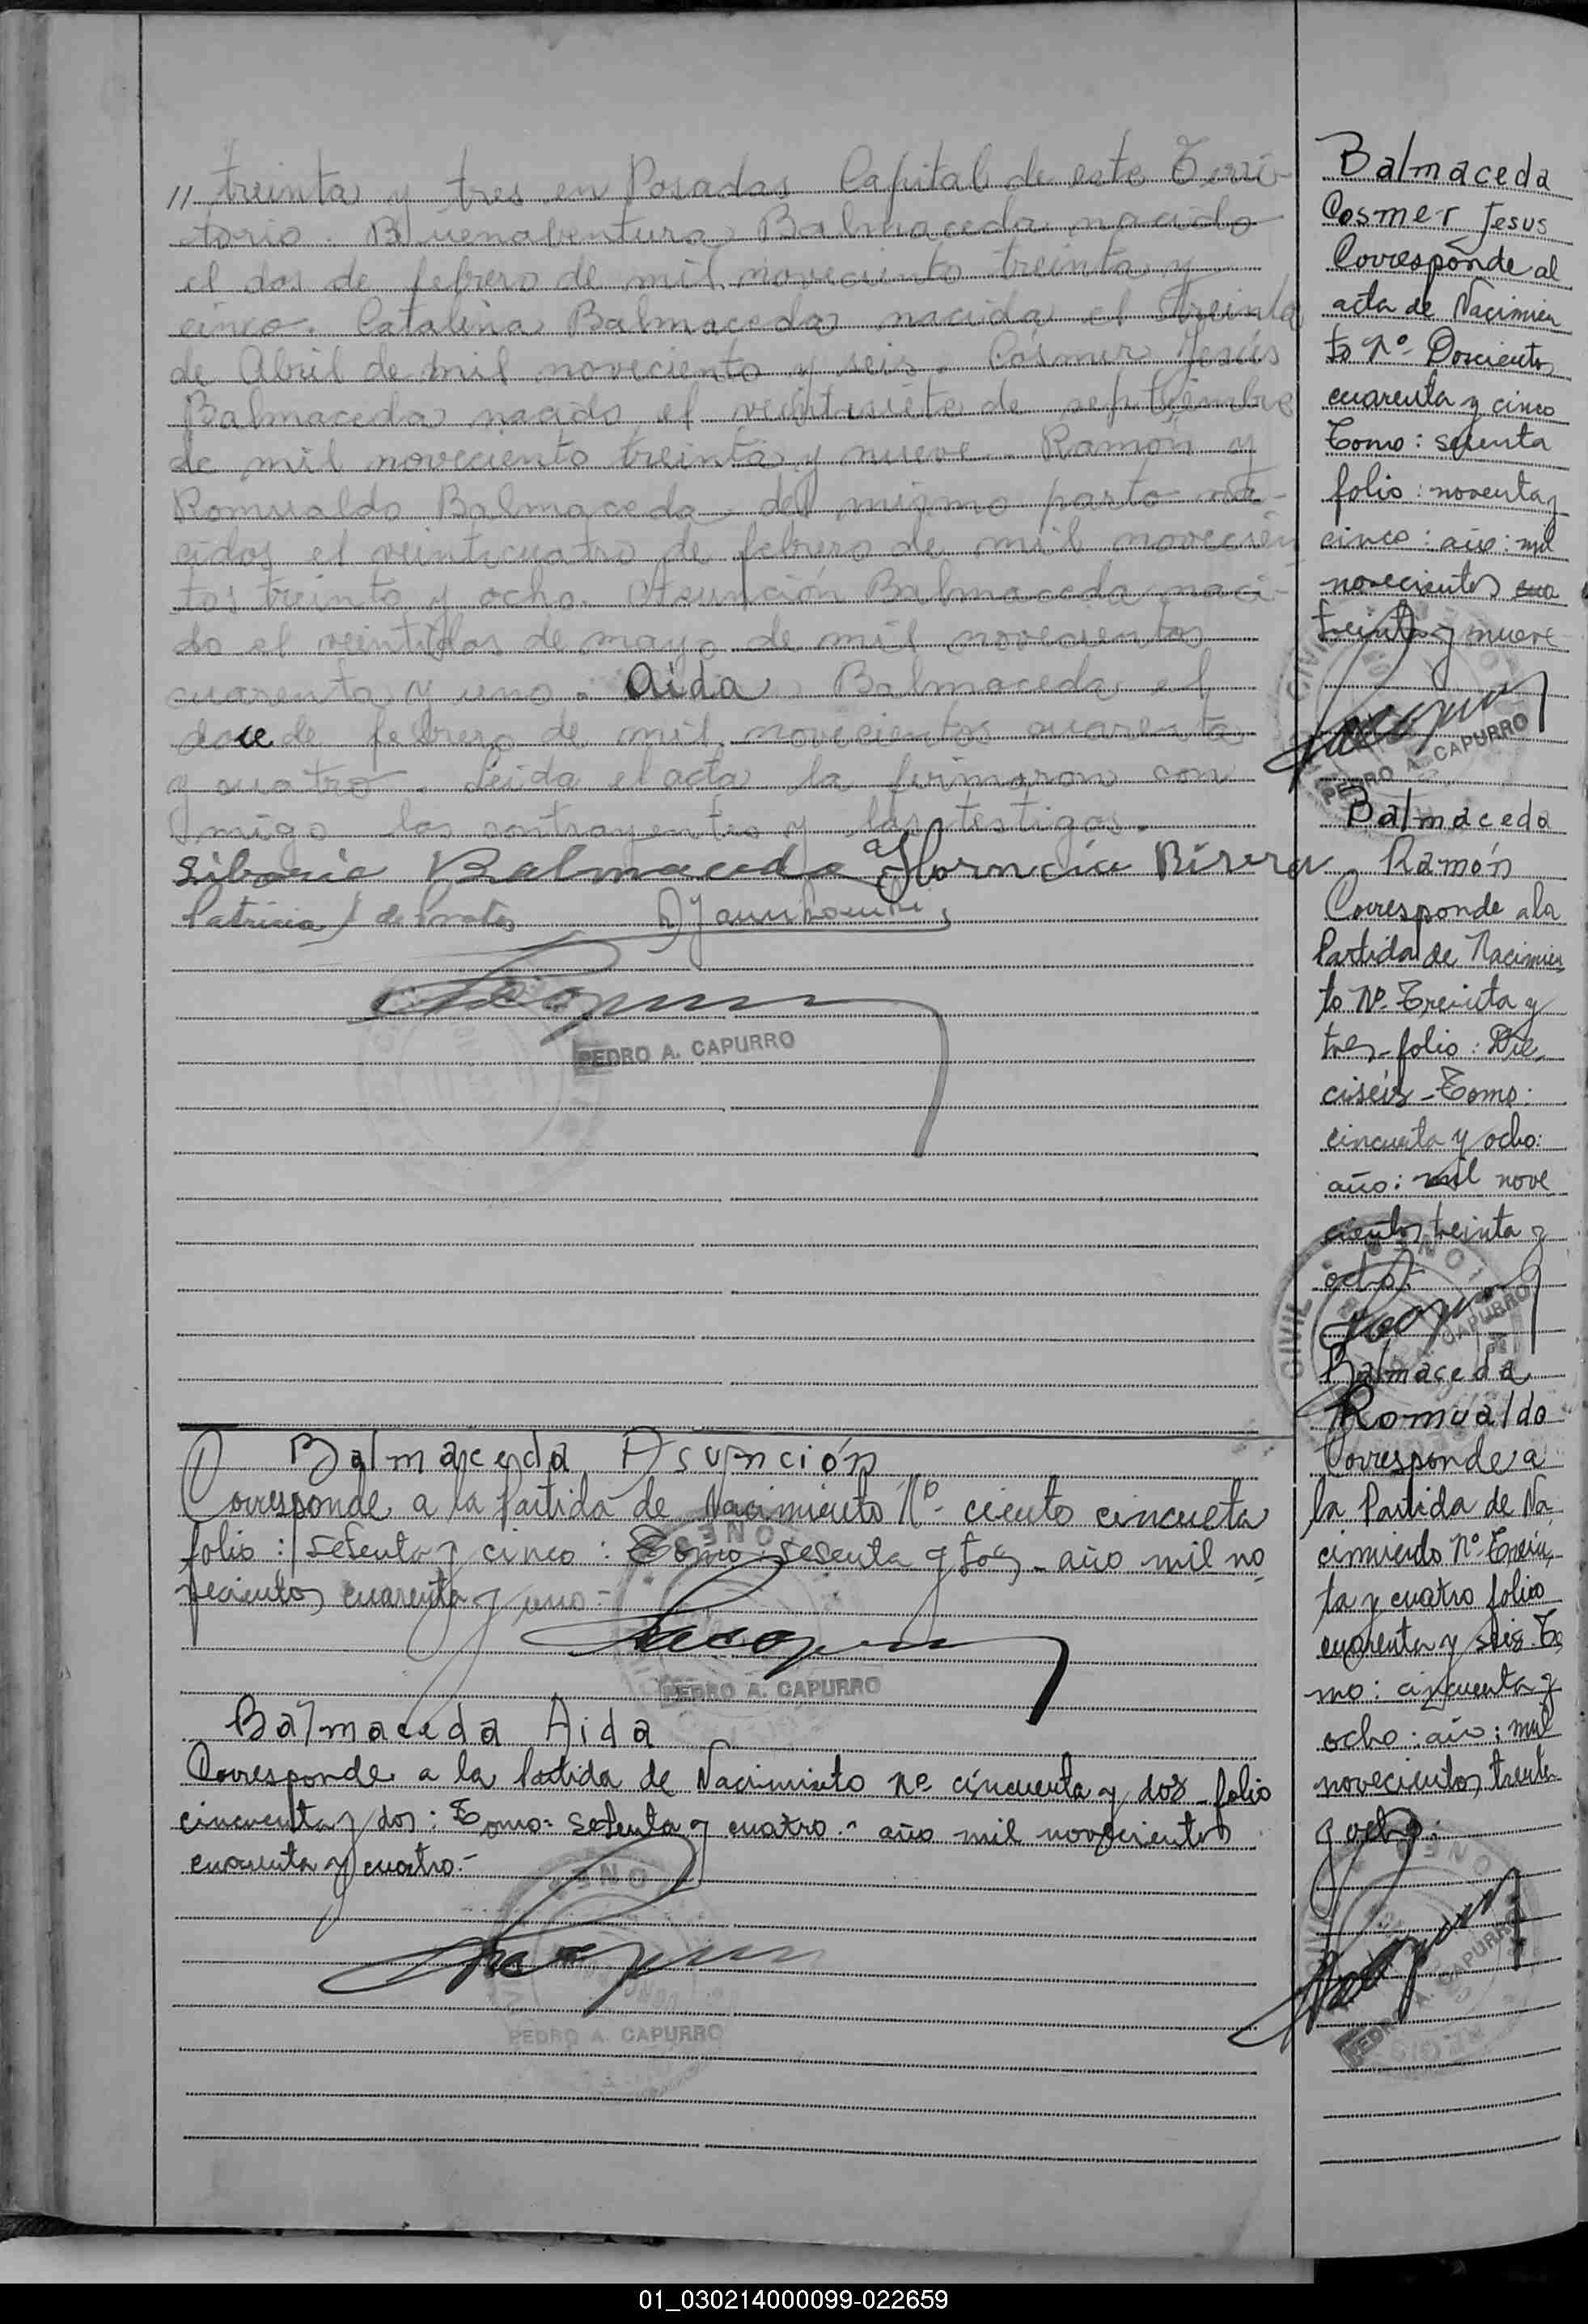 // treinta y tres en Posadas Capital de este Terri-
torio. Buenaventura Balmaceda nacido
el dos de febrero de mil noveciento treinta y
cinco. Catalina Balmaceda nacida el treinta
de Abril de mil noveciento y seis. Cosmer Jesús
Balmaceda nacido el veintisiete de septiembre
de mil noveciento treinta y nueve. Ramón y
Romualdo Balmaceda del mismo parto na-
cidos el veinticuatro de febrero de mil novecien
tos treinta y ocho. Asunción Balmaceda naci-
do el veintidos de mayo de mil novecientos
cuarenta y uno. Aida Balmaceda el
doce de febrero de mil novecientos cuarenta
y cuatro. Leida el acta la firmaron con
migo los contrayentes y los testigos.
Balmaceda
PEDRO A. CAPURRO
Balmaceda Asunción
Corresponde a la Partida de Nacimiento Nº ciento cincueta
folio: setenta y cinco: Tomo: sesenta y - año mil no
vecientos cuarenta y uno.-
PEDRO A. CAPURRO
Balmaceda Aida
Corresponde a la Partida de Nacimiento Nº cincuenta y dos - folio
cincuenta y dos: Tomo: setenta y cuatro.- año mil novecientos
cuarenta y cuatro.-
PEDRO A. CAPURRO
Balmaceda
Cosmer Jesus
Corresponde al
acta de Nacimien
to Nº Dosciento
cuarenta y cinco
Tomo:
folio: noventa y
cinco: año: mil
novecientos cua
treinta y nueve
PEDRO A. CAPURRO
Balmaceda
Ramón
Corresponde a la
Partida de Nacimien
to Nº Treinta y
tres - folio: Die
ciseis - Tomo:
cincuenta y ocho:
año: mil nove
cientos treinta y
ocho.-
CIVIL
CAPURRO
Balmaceda
Romualdo
Corresponde a
la Partida de Na
cimiento Nº Trein
ta y cuatro folio
cuarenta y seis. To
mo: cincuenta y
ocho: año: mil
novecientos treinta
y ocho.-
PEDRO A. CAPURRO
01_030214000099-022659